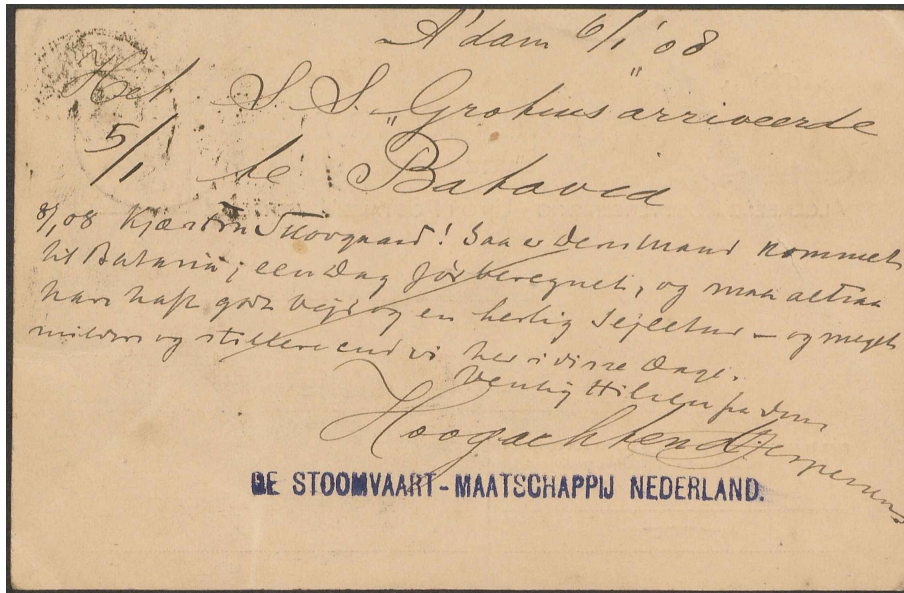 A'dam 6/1 '08
Het S. S. „Grotius" arriveerde
5/1 te Batavia
8/1 08 Kjære Fru Skovgaard! Saa er Deres Mand kommet
til Batavia; een Dag før beregnet, og maa altsaa
have haft godt Vejr og en herlig Sejltur – og meget
mildere og stillere end vi her i disse Dage.
Venlig Hilsen fra Deres
Hoogachtend
DE STOOMVAART-MAATSCHAPPIJ NEDERLAND.